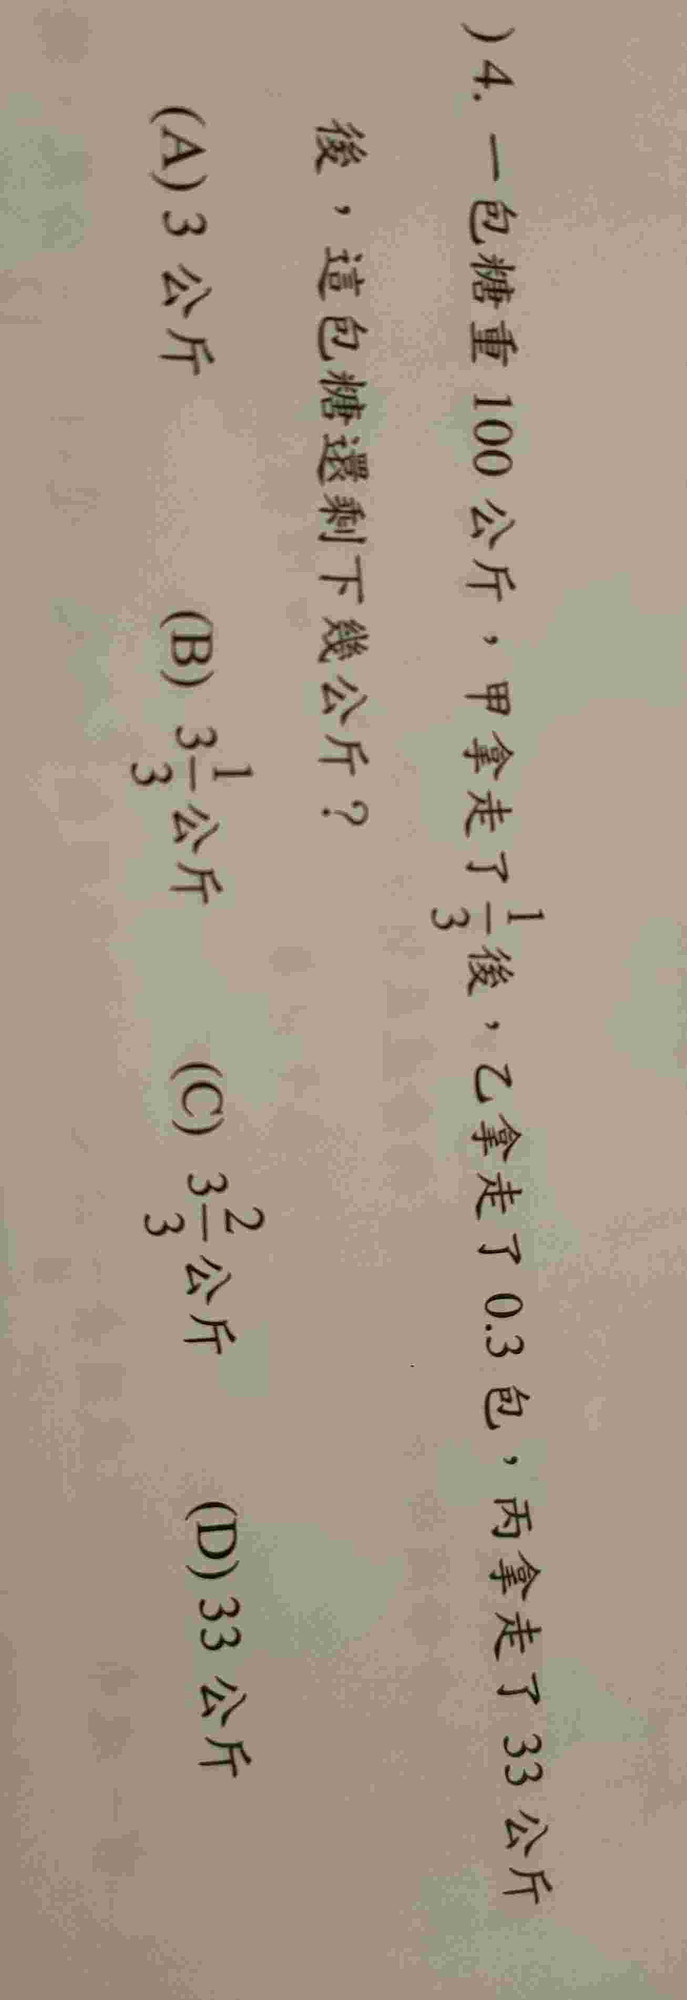 )4. 一包糖重 100 公斤，甲拿走了 1/3 後，乙拿走了 0.3 包，丙拿走了 33 公斤
後，這包糖還剩下幾公斤？
(A) 3 公斤 (B) 3 1/3 公斤 (C) 3 2/3 公斤 (D) 33 公斤